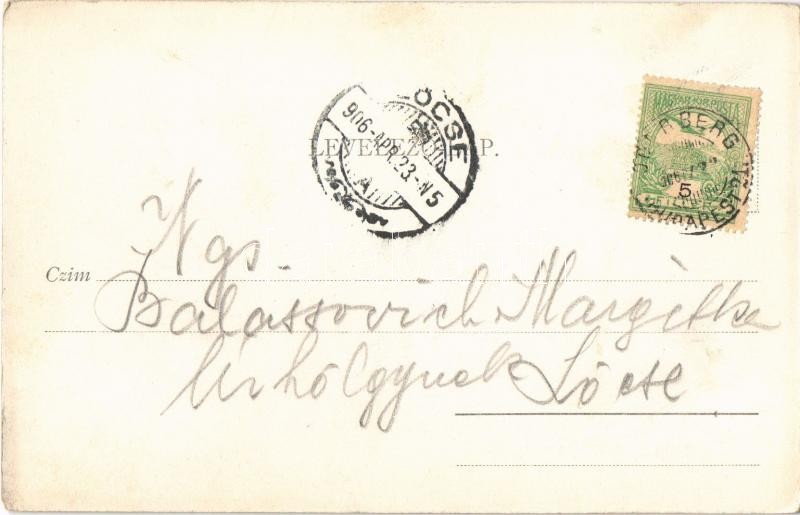 LEVELEZŐ-LAP.
LŐCSE
906-APR.23-N5
A
MAGYAR KIR. POSTA
BUDAPEST
5
Czim
Ngs.
Balassovich Margitka
Úrhölgynek Lőcse